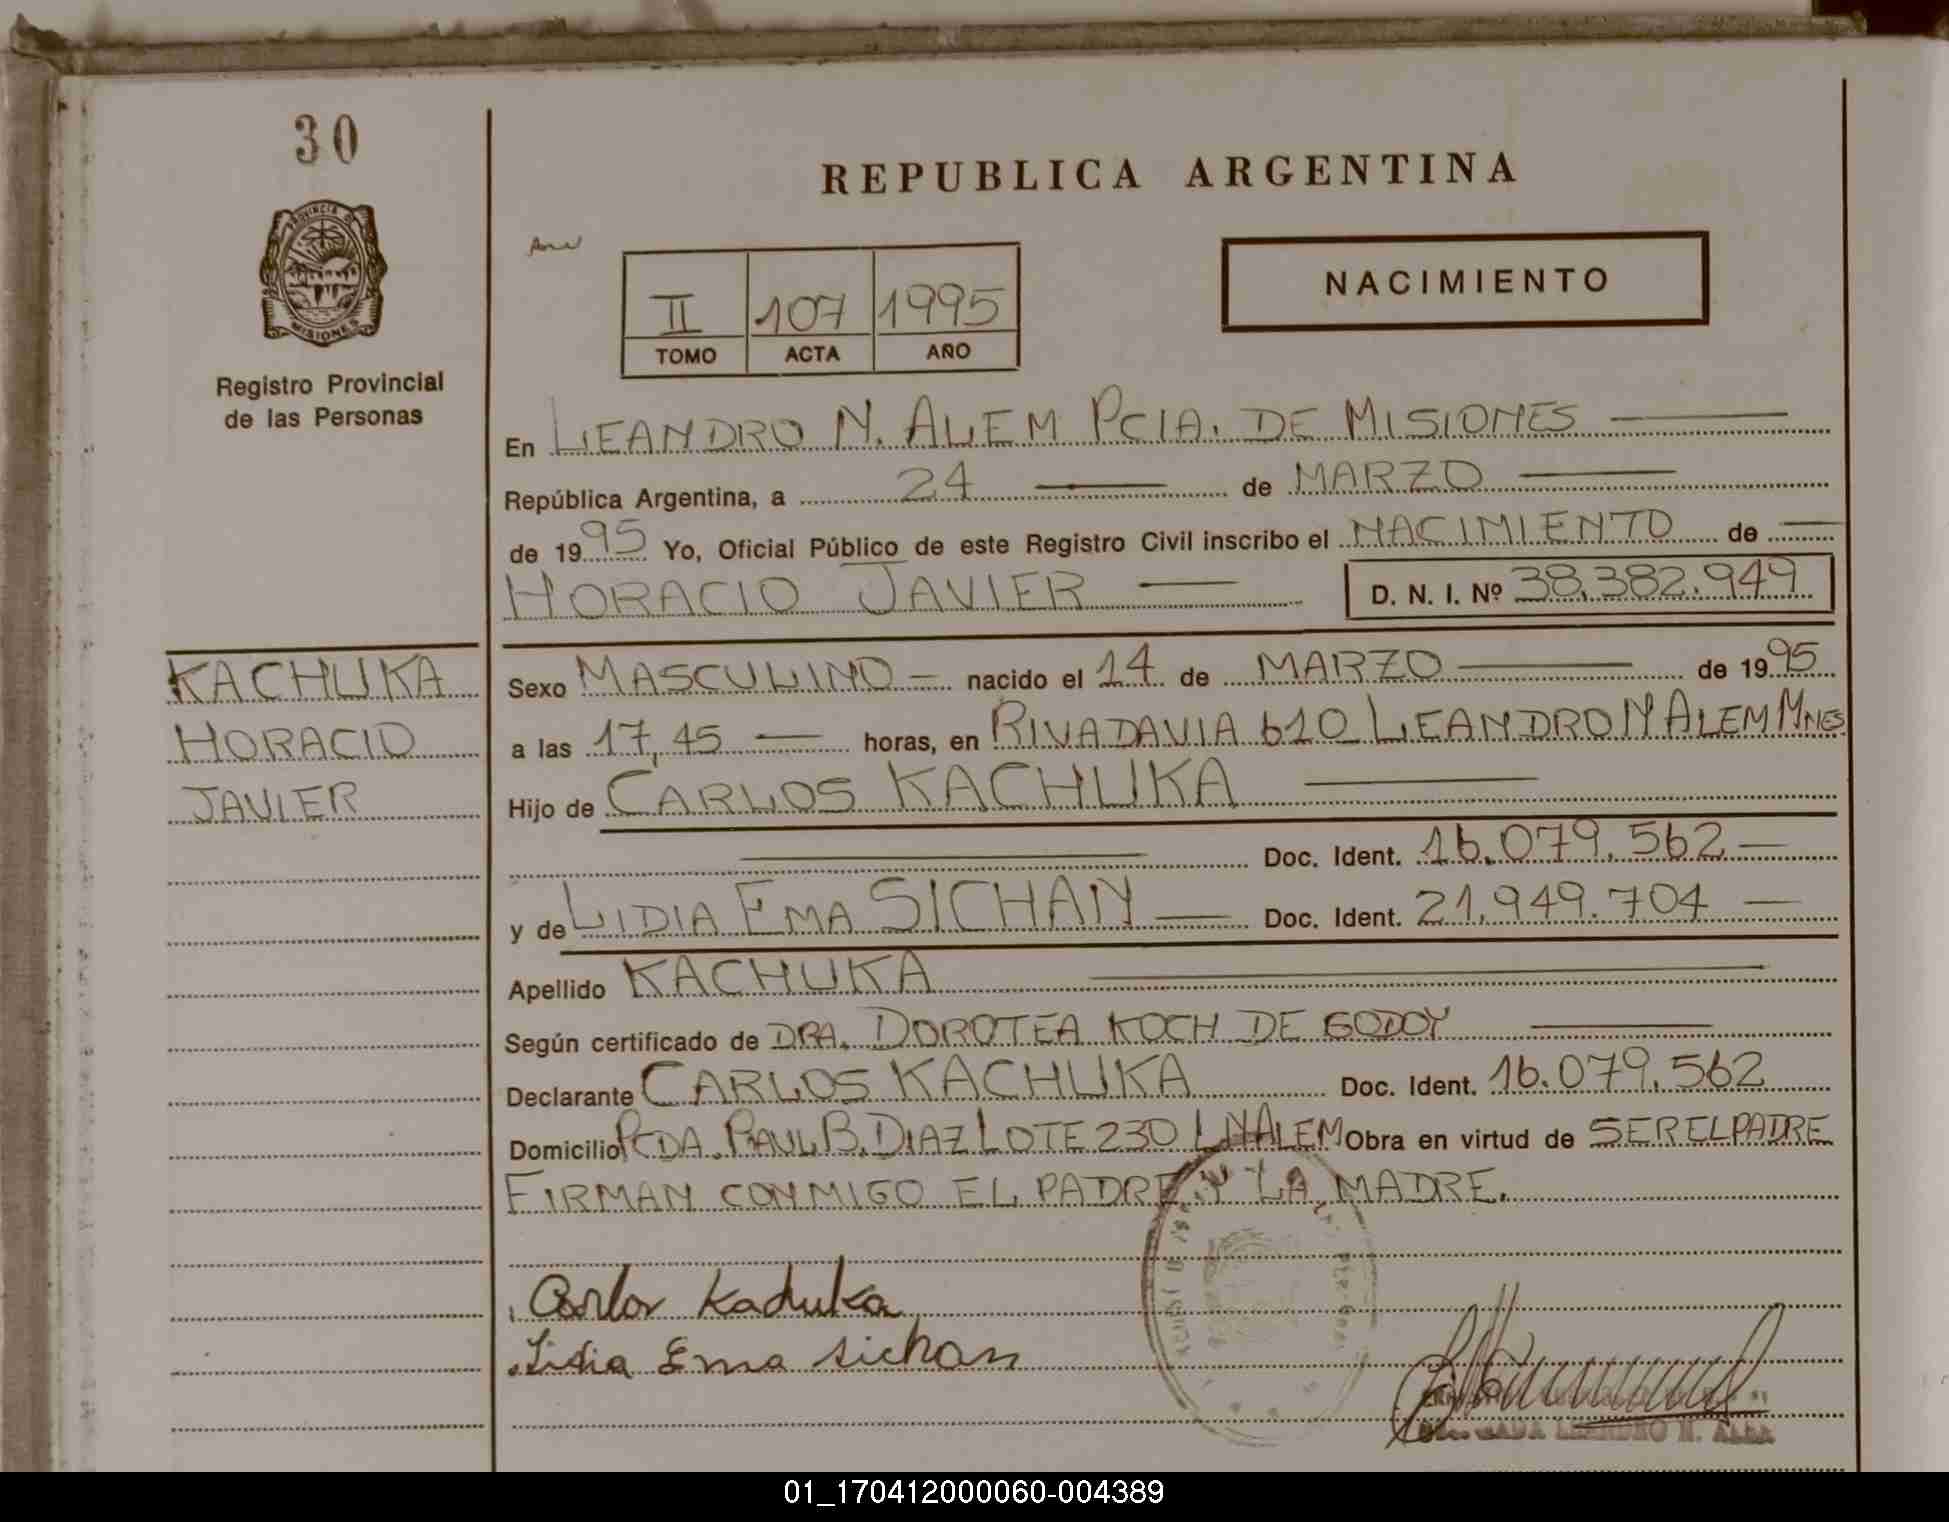 30
REPUBLICA ARGENTINA
PROVINCIA DE
MISIONES
NACIMIENTO
II 107 1995
TOMO ACTA AÑO
Registro Provincial
de las Personas
En LEANDRO N. ALEM PCIA. DE MISIONES
República Argentina, a 24 de MARZO
de 1995 Yo, Oficial Público de este Registro Civil inscribo el NACIMIENTO de
HORACIO JAVIER D. N. I. Nº 38.382.949
KACHUKA
HORACIO
JAVIER
Sexo MASCULINO nacido el 14 de MARZO de 1995
a las 17,45 horas, en RIVADAVIA 610 LEANDRO N ALEM MNES.
Hijo de CARLOS KACHUKA
Doc. Ident. 16.079.562
y de LIDIA EMA SICHAN Doc. Ident. 21.949.704
Apellido KACHUKA
Según certificado de DRA. DOROTEA KOCH DE GODOY
Declarante CARLOS KACHUKA Doc. Ident. 16.079.562
Domicilio PCDA. RAUL B. DIAZ LOTE 230 L N ALEM Obra en virtud de SER EL PADRE
FIRMAN CONMIGO EL PADRE Y LA MADRE.
Carlos Kachuka
Lidia Ema Sichan
LEANDRO N. ALEM
01_170412000060-004389